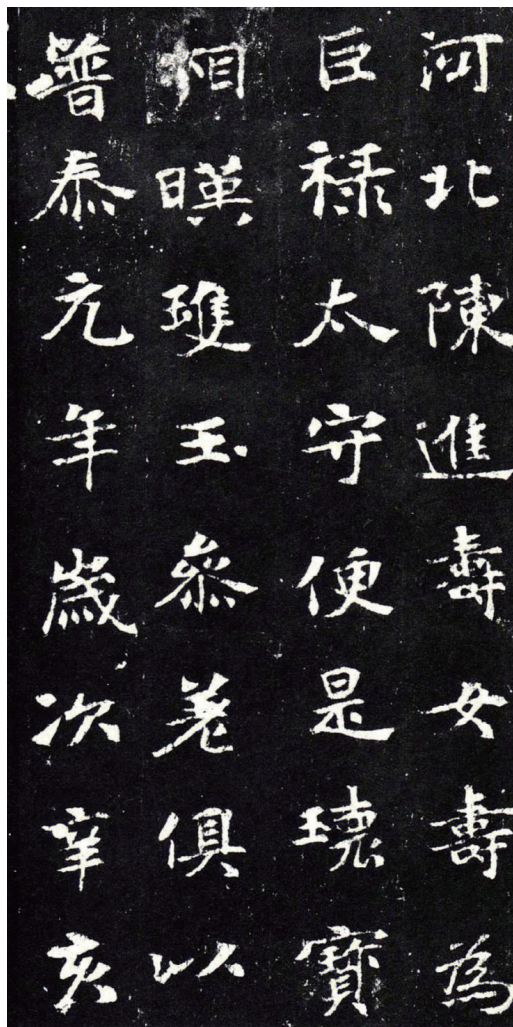 河北陳進壽女壽為
巨禄太守便是瓌寶
相暎瓊玉叅差俱以
普泰元年歲次辛亥